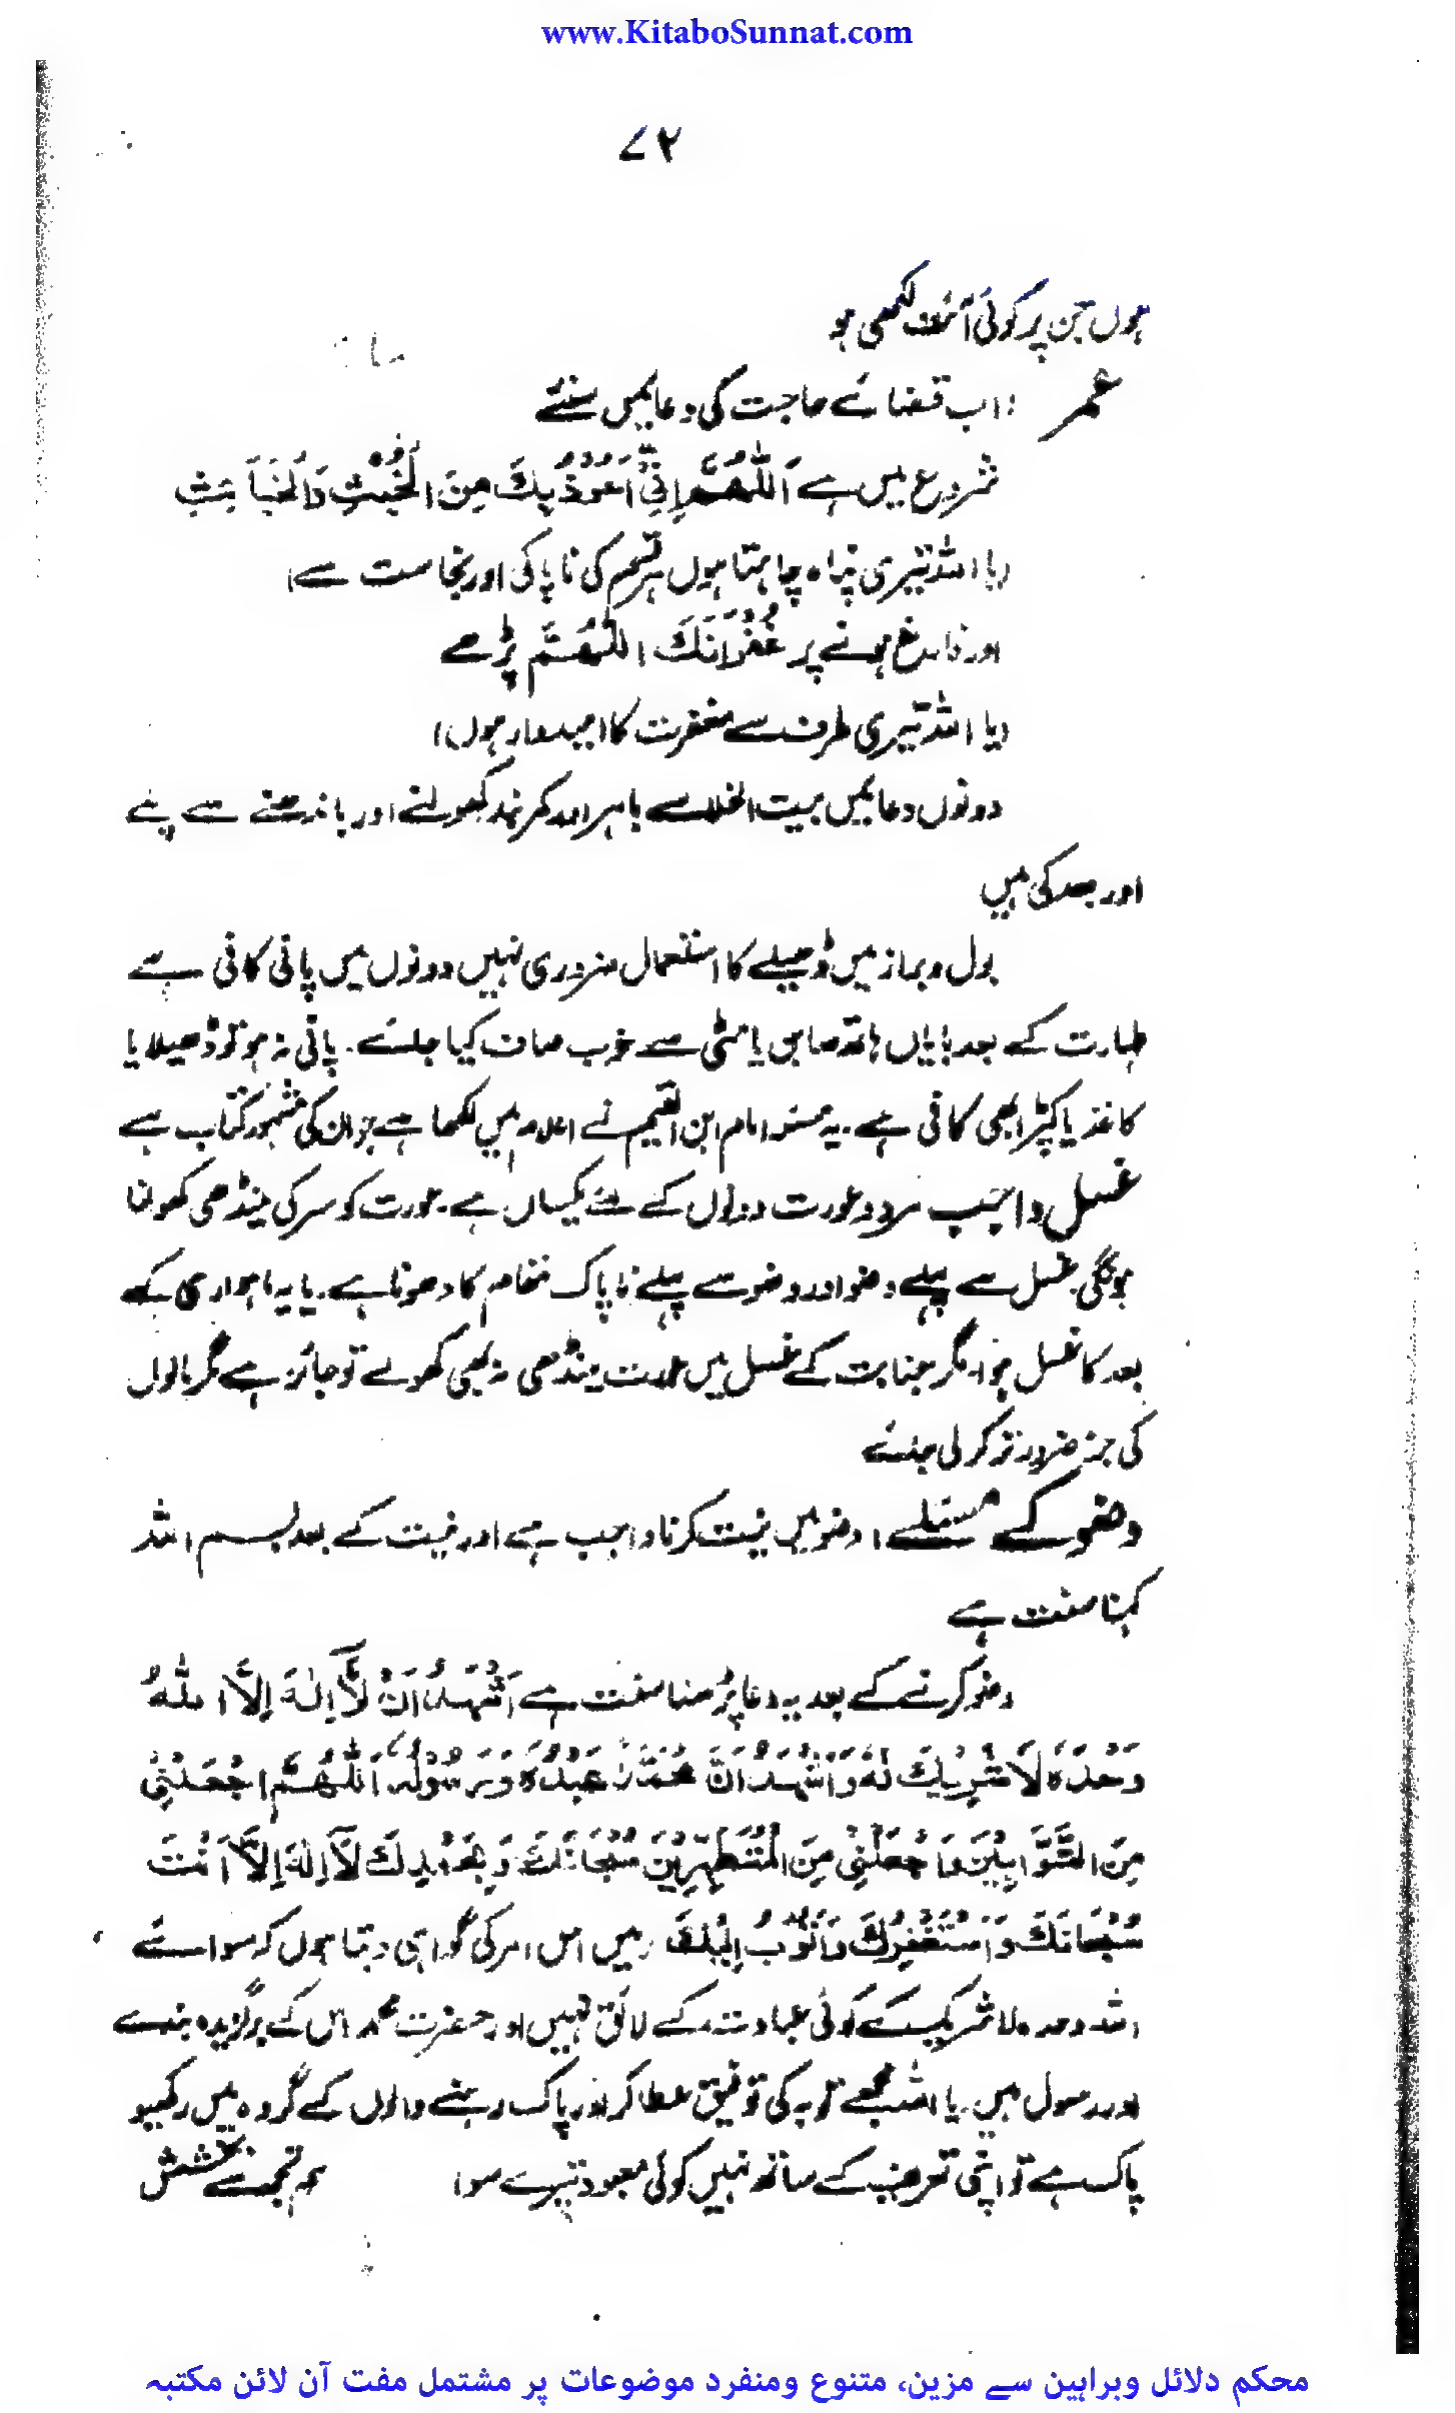 www.KitaboSunnat.com
۷۲
ہوں جن پر کوئی آئت لکھی ہو
عمر : اب قضائے حاجت کی دعائیں سنئے
شروع میں ہے اَللّٰهُمَّ اِنِّیْ اَعُوْذُ بِكَ مِنَ الْخُبُثِ وَالْخَبَآئِثِ
(یا اللہ تیری پناہ چاہتا ہوں ہر قسم کی ناپاکی اور نجاست سے)
اور فارغ ہونے پر غُفْرَانَكَ اللّٰهُمَّ پڑھے
(یا اللہ تیری طرف سے مغفرت کا امیدوار ہوں)
دونوں دعائیں بیت الخلا سے باہر اور کمربند کھولنے اور باندھنے سے پہلے
اور بعد کی ہیں
بول و براز میں ڈھیلے کا استعمال ضروری نہیں دونوں میں پانی کافی ہے
طہارت کے بعد بایاں ہاتھ صابن یا مٹی سے خوب صاف کیا جائے۔ پانی نہ ہو تو ڈھیلا یا
کاغذ یا کپڑا بھی کافی ہے۔ یہ مسئلہ امام ابن القیم نے اعلام میں لکھا ہے جو ان کی مشہور کتاب ہے
غسل واجب مرد و عورت دونوں کے لئے یکساں ہے۔ عورت کو سر کی مینڈھی کھولنا
ہونگی غسل سے پہلے وضو اور وضو سے پہلے ناپاک مقام کا دھونا ہے۔ یا یہ ماہواری کے
بعد کا غسل ہو، مگر جنابت کے غسل میں عورت مینڈھی نہ بھی کھولے تو جائز ہے مگر بالوں
کی جڑ ضرور تر کر لی جائے
وضو کے مسئلے : وضو میں نیت کرنا واجب ہے اور نیت کے بعد بسم اللہ
کہنا سنت ہے
وضو کرنے کے بعد یہ دعا پڑھنا سنت ہے اَشْهَدُ اَنْ لَّآ اِلٰهَ اِلَّا اللّٰهُ
وَحْدَهٗ لَا شَرِيْكَ لَهٗ وَاَشْهَدُ اَنَّ مُحَمَّدًا عَبْدُهٗ وَرَسُوْلُهٗ اَللّٰهُمَّ اجْعَلْنِیْ
مِنَ التَّوَّابِيْنَ وَاجْعَلْنِیْ مِنَ الْمُتَطَهِّرِيْنَ سُبْحَانَكَ وَبِحَمْدِكَ لَآ اِلٰهَ اِلَّا اَنْتَ
سُبْحَانَكَ وَاَسْتَغْفِرُكَ وَاَتُوْبُ اِلَيْكَ (میں اس امر کی گواہی دیتا ہوں کہ سوائے
اللہ وحدہ لا شریک کے کوئی عبادت کے لائق نہیں اور حضرت محمد اس کے برگزیدہ بندے
اور رسول ہیں۔ یا اللہ مجھے توبہ کی توفیق عطا کر اور پاک رہنے والوں کے گروہ میں رکھیو
پاک ہے تو اپنی تعریف کے ساتھ نہیں کوئی معبود تیرے سوا ہم تجھ سے بخشش
محکم دلائل وبراہین سے مزین، متنوع ومنفرد موضوعات پر مشتمل مفت آن لائن مکتبہ